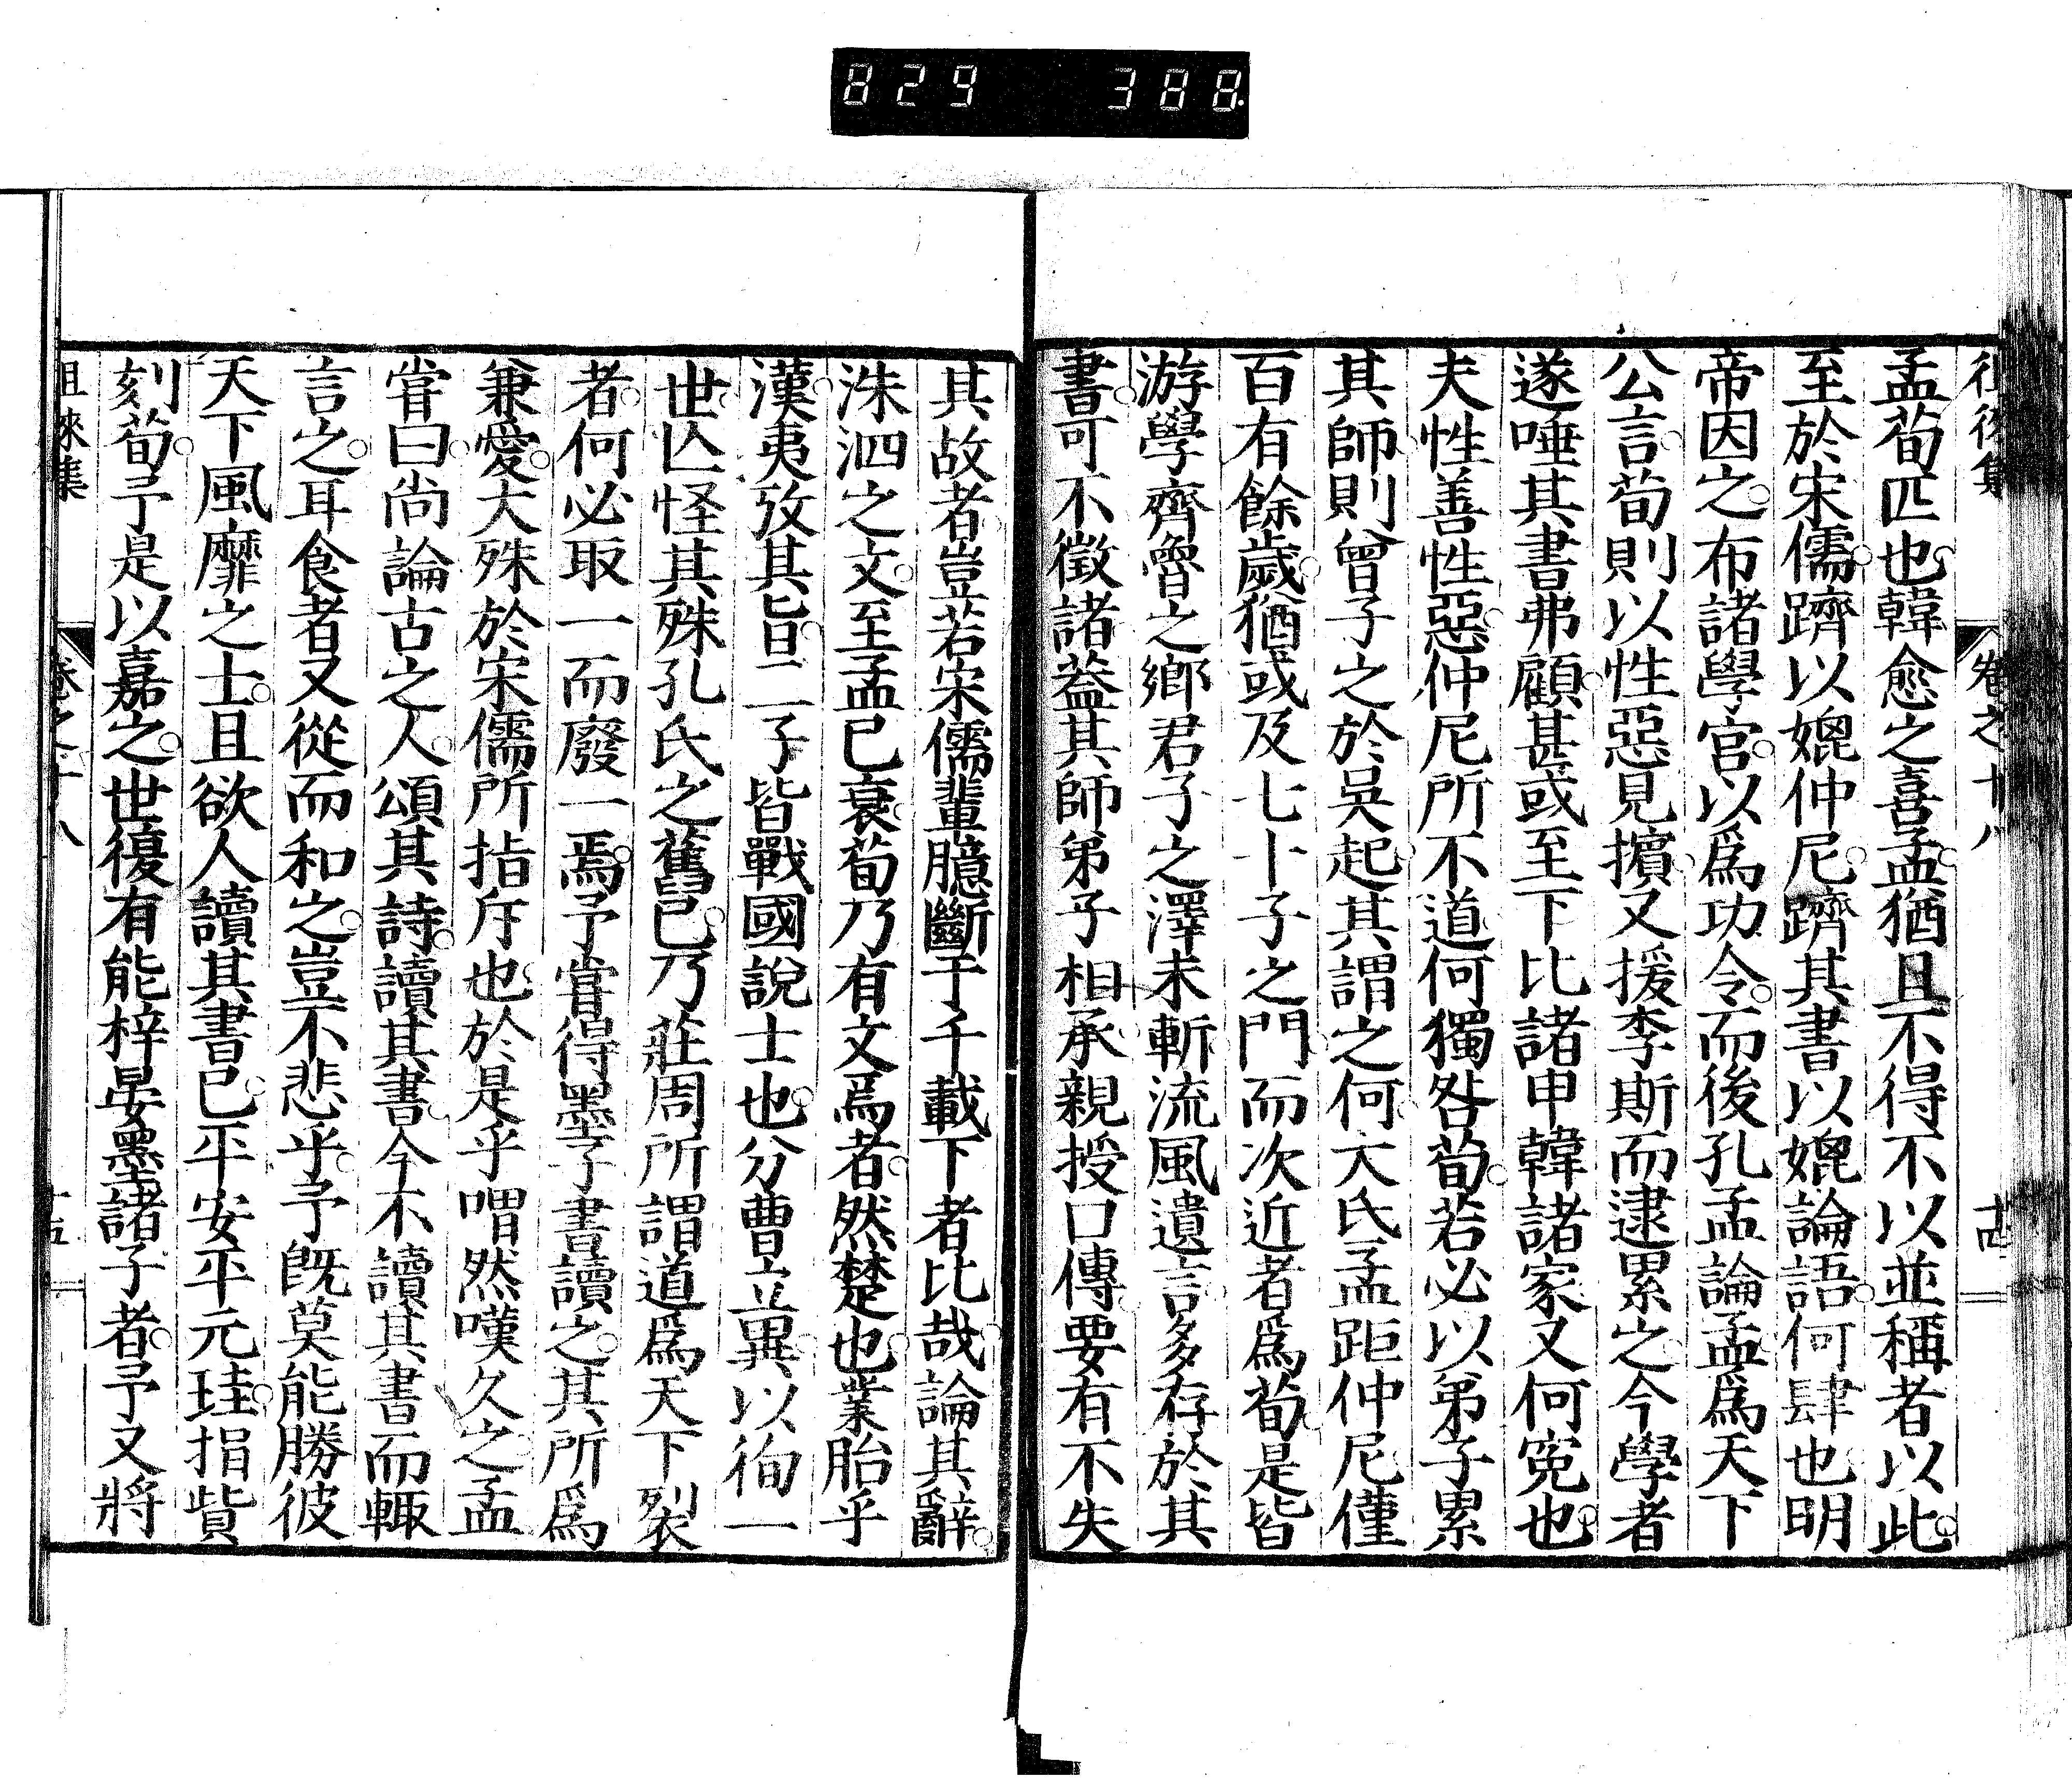 829 388
卷之十八
孟荀匹也韓愈之喜孟猶且不得不以並稱者以此
至於宋儒躋以媲仲尼躋其書以媲論語何肆也明
帝因之布諸學官以爲功令而後孔孟論孟爲天下
公言荀則以性惡見擯又援李斯而逮累之今學者
遂唾其書弗顧甚或至下比諸申韓諸家又何寃也
夫性善性惡仲尼所不道何獨咎荀若必以弟子累
其師則曾子之於吳起其謂之何大氐孟距仲尼僅
百有餘歲猶或及七十子之門而次近者爲荀是皆
游學齊魯之鄉君子之澤未斬流風遺言多存於其
書可不徵諸葢其師弟子相承親授口傳要有不失
其故者豈若宋儒輩臆斷于千載下者比哉論其辭
洙泗之文至孟已衰荀乃有文焉者然楚也業胎乎
漢夷攷其旨二子皆戰國說士也分曹立異以徇一
世亾怪其殊孔氏之舊已乃莊周所謂道爲天下裂
者何必取一而廢一焉予嘗得墨子書讀之其所爲
兼愛大殊於宋儒所指斥也於是乎喟然嘆久之孟
嘗曰尚論古之人頌其詩讀其書今不讀其書而輙
言之耳食者又從而和之豈不悲乎予旣莫能勝彼
天下風靡之士且欲人讀其書已平安平元珪捐貲
刻荀予是以嘉之世復有能梓晏墨諸子者予又將
徂徠集 卷之十八